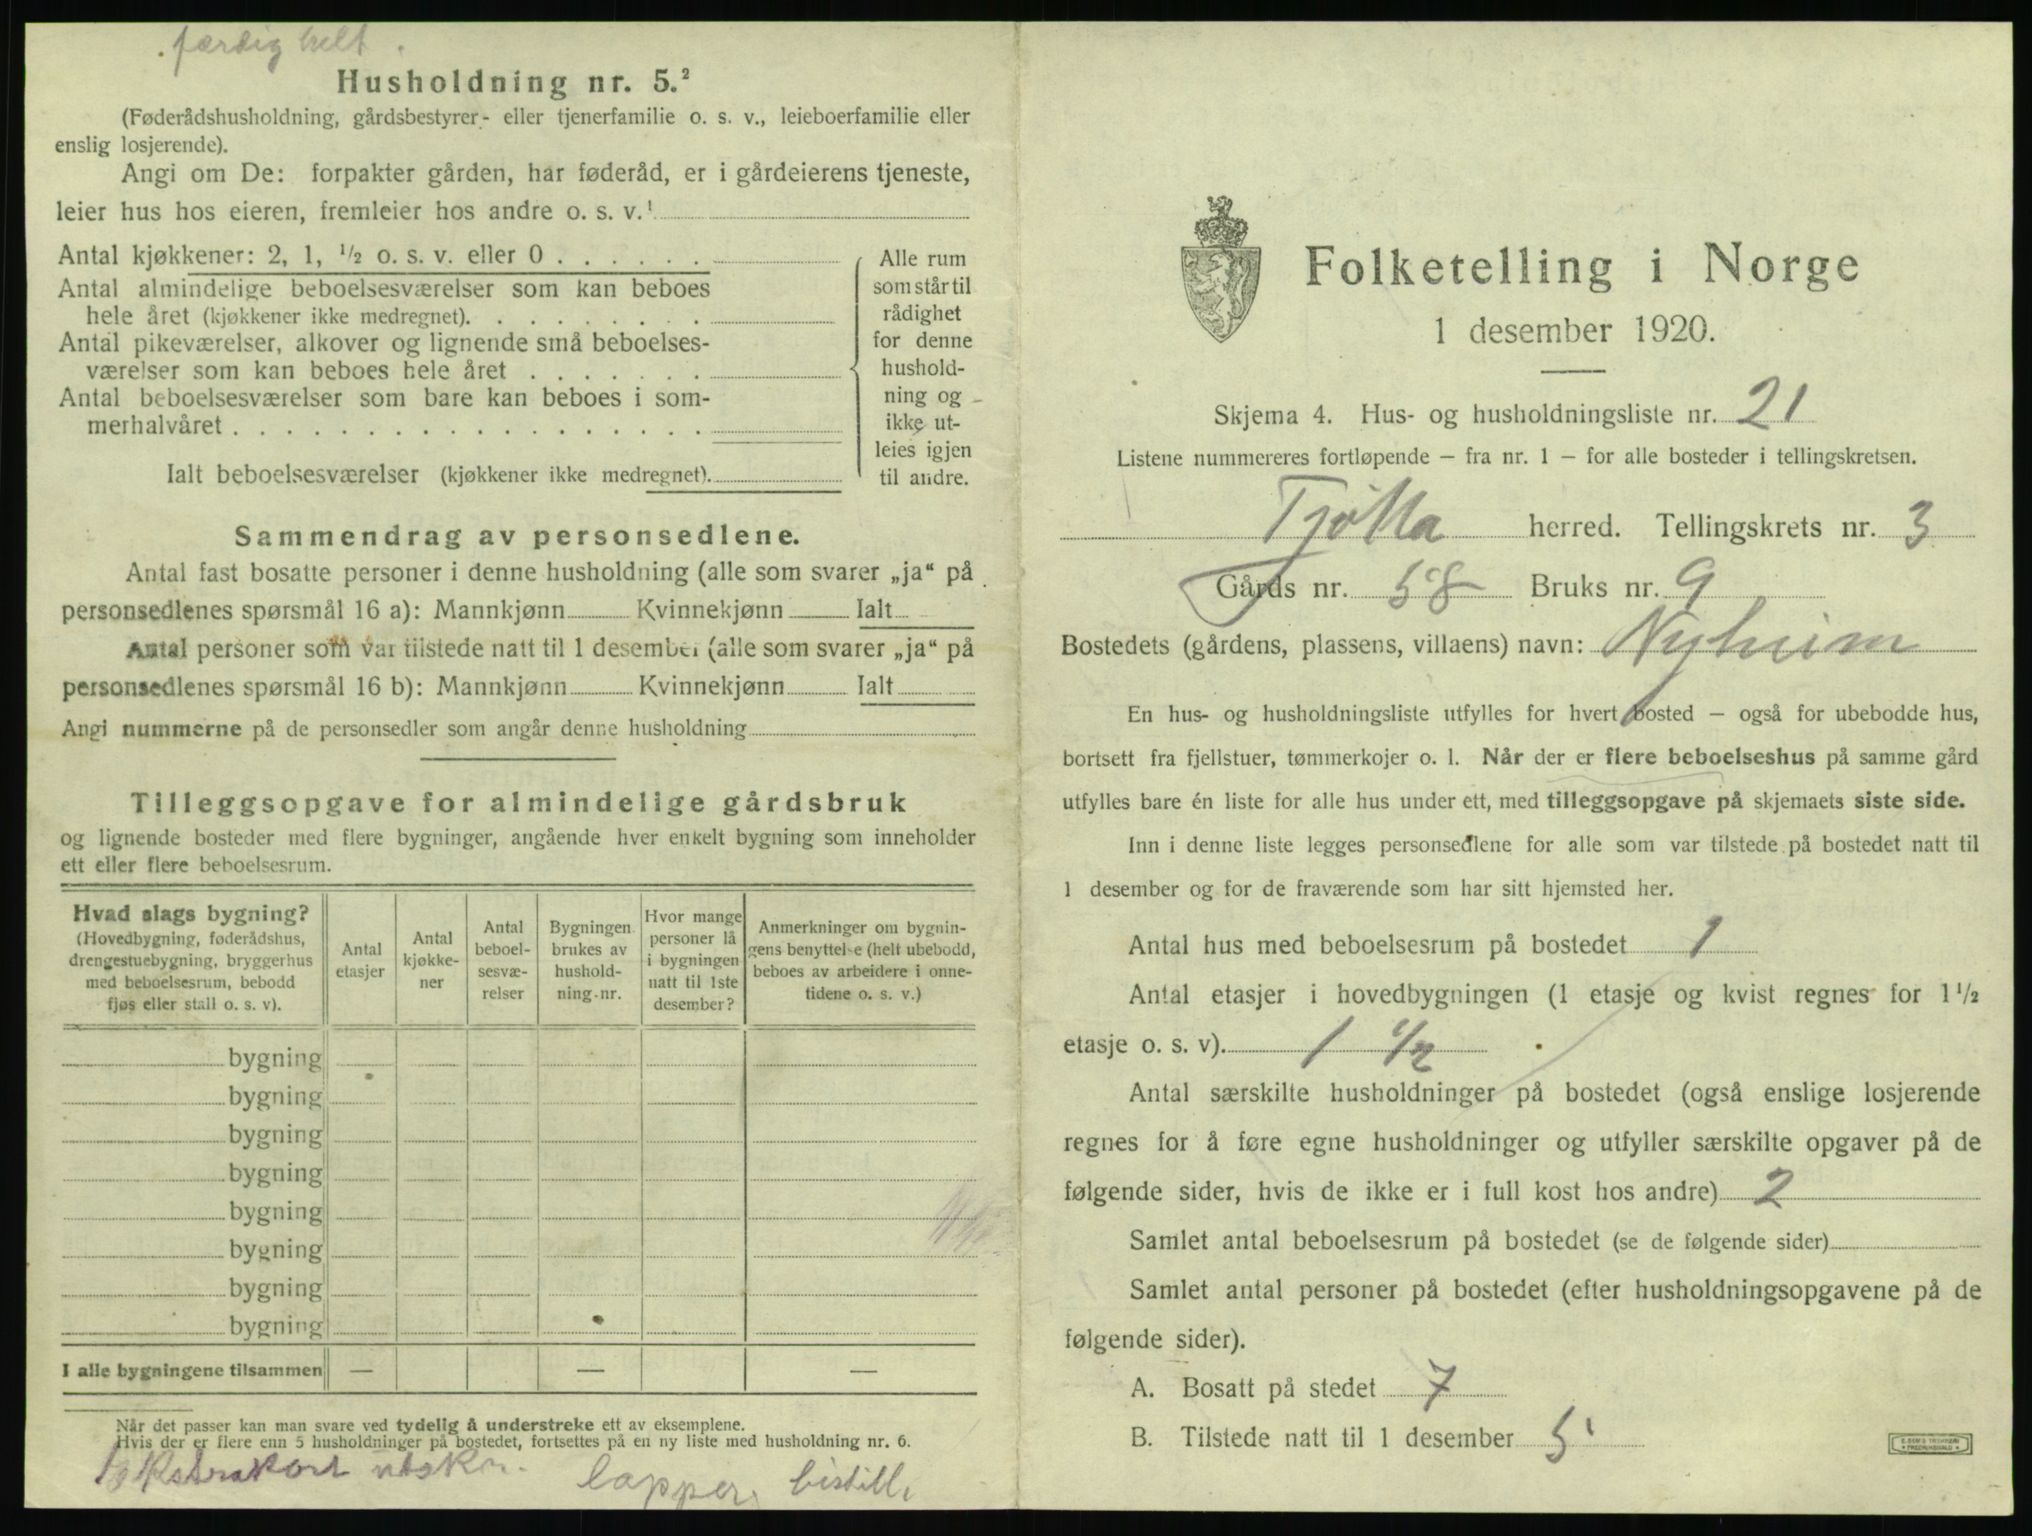 færdig helt.
Husholdning nr. 5.²
(Føderådshusholdning, gårdsbestyrer- eller tjenerfamilie o. s. v., leieboerfamilie eller
enslig losjerende).
Angi om De: forpakter gården, har føderåd, er i gårdeierens tjeneste,
leier hus hos eieren, fremleier hos andre o. s. v.¹
Antal kjøkkener: 2, 1, ½ o. s. v. eller 0 . . . . . .
Antal almindelige beboelsesværelser som kan beboes
hele året (kjøkkener ikke medregnet). . . . . . . . .
Antal pikeværelser, alkover og lignende små beboelses-
værelser som kan beboes hele året . . . . . . .
Antal beboelsesværelser som bare kan beboes i som-
merhalvåret . . . . . . . . . . . . . . . . .
Ialt beboelsesværelser (kjøkkener ikke medregnet).
Alle rum
som står til
rådighet
for denne
hushold-
ning og
ikke ut-
leies igjen
til andre.
Sammendrag av personsedlene.
Antal fast bosatte personer i denne husholdning (alle som svarer „ja“ på
personsedlenes spørsmål 16 a): Mannkjønn Kvinnekjønn Ialt
Antal personer som var tilstede natt til 1 desember (alle som svarer „ja“ på
personsedlenes spørsmål 16 b): Mannkjønn Kvinnekjønn Ialt
Angi nummerne på de personsedler som angår denne husholdning
Tilleggsopgave for almindelige gårdsbruk
og lignende bosteder med flere bygninger, angående hver enkelt bygning som inneholder
ett eller flere beboelsesrum.
Hvad slags bygning?
(Hovedbygning, føderådshus,
drengestuebygning, bryggerhus
med beboelsesrum, bebodd
fjøs eller stall o. s. v).
Antal
etasjer
Antal
kjøkke-
ner
Antal
beboel-
sesvæ-
relser
Bygningen
brukes av
hushold-
ning-nr.
Hvor mange
personer lå
i bygningen
natt til 1ste
desember?
Anmerkninger om bygnin-
gens benyttelse (helt ubebodd,
beboes av arbeidere i onne-
tidene o. s. v.)
bygning
bygning
bygning
bygning
bygning
bygning
bygning
bygning
I alle bygningene tilsammen — — —
Når det passer kan man svare ved tydelig å understreke ett av eksemplene.
Hvis der er flere enn 5 husholdninger på bostedet, fortsettes på en ny liste med husholdning nr. 6.
lapper bistill.
Folketelling i Norge
1 desember 1920.
Skjema 4. Hus- og husholdningsliste nr. 21
Listene nummereres fortløpende — fra nr. 1 — for alle bosteder i tellingskretsen.
Tjøtta herred. Tellingskrets nr. 3
Gårds nr. 58 Bruks nr. 9
Bostedets (gårdens, plassens, villaens) navn: Nyheim
En hus- og husholdningsliste utfylles for hvert bosted — også for ubebodde hus,
bortsett fra fjellstuer, tømmerkojer o. l. Når der er flere beboelseshus på samme gård
utfylles bare én liste for alle hus under ett, med tilleggsopgave på skjemaets siste side.
Inn i denne liste legges personsedlene for alle som var tilstede på bostedet natt til
1 desember og for de fraværende som har sitt hjemsted her.
Antal hus med beboelsesrum på bostedet 1
Antal etasjer i hovedbygningen (1 etasje og kvist regnes for 1½
etasje o. s. v). 1 ½
Antal særskilte husholdninger på bostedet (også enslige losjerende
regnes for å føre egne husholdninger og utfyller særskilte opgaver på de
følgende sider, hvis de ikke er i full kost hos andre) 2
Samlet antal beboelsesrum på bostedet (se de følgende sider)
Samlet antal personer på bostedet (efter husholdningsopgavene på de
følgende sider).
A. Bosatt på stedet 7
B. Tilstede natt til 1 desember 5